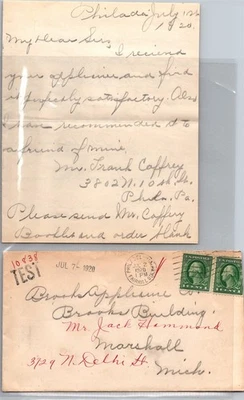 Philada July 12th
1920.
My Dear Sir,
I recieved
your appliance and find
it perfectly satisfactory. Also
I have recommended it to
a friend of mine
Mr. Frank Caffrey
3802 N. 10th St.
Phila. Pa.
Please send Mr. Caffery
Booklet and order blank
TEST
JUL 1920
Brooks Appliance Co.
Brooks Building
Mr. Jack Hammond
Marshall
3729 N. Delhi St
Mich.